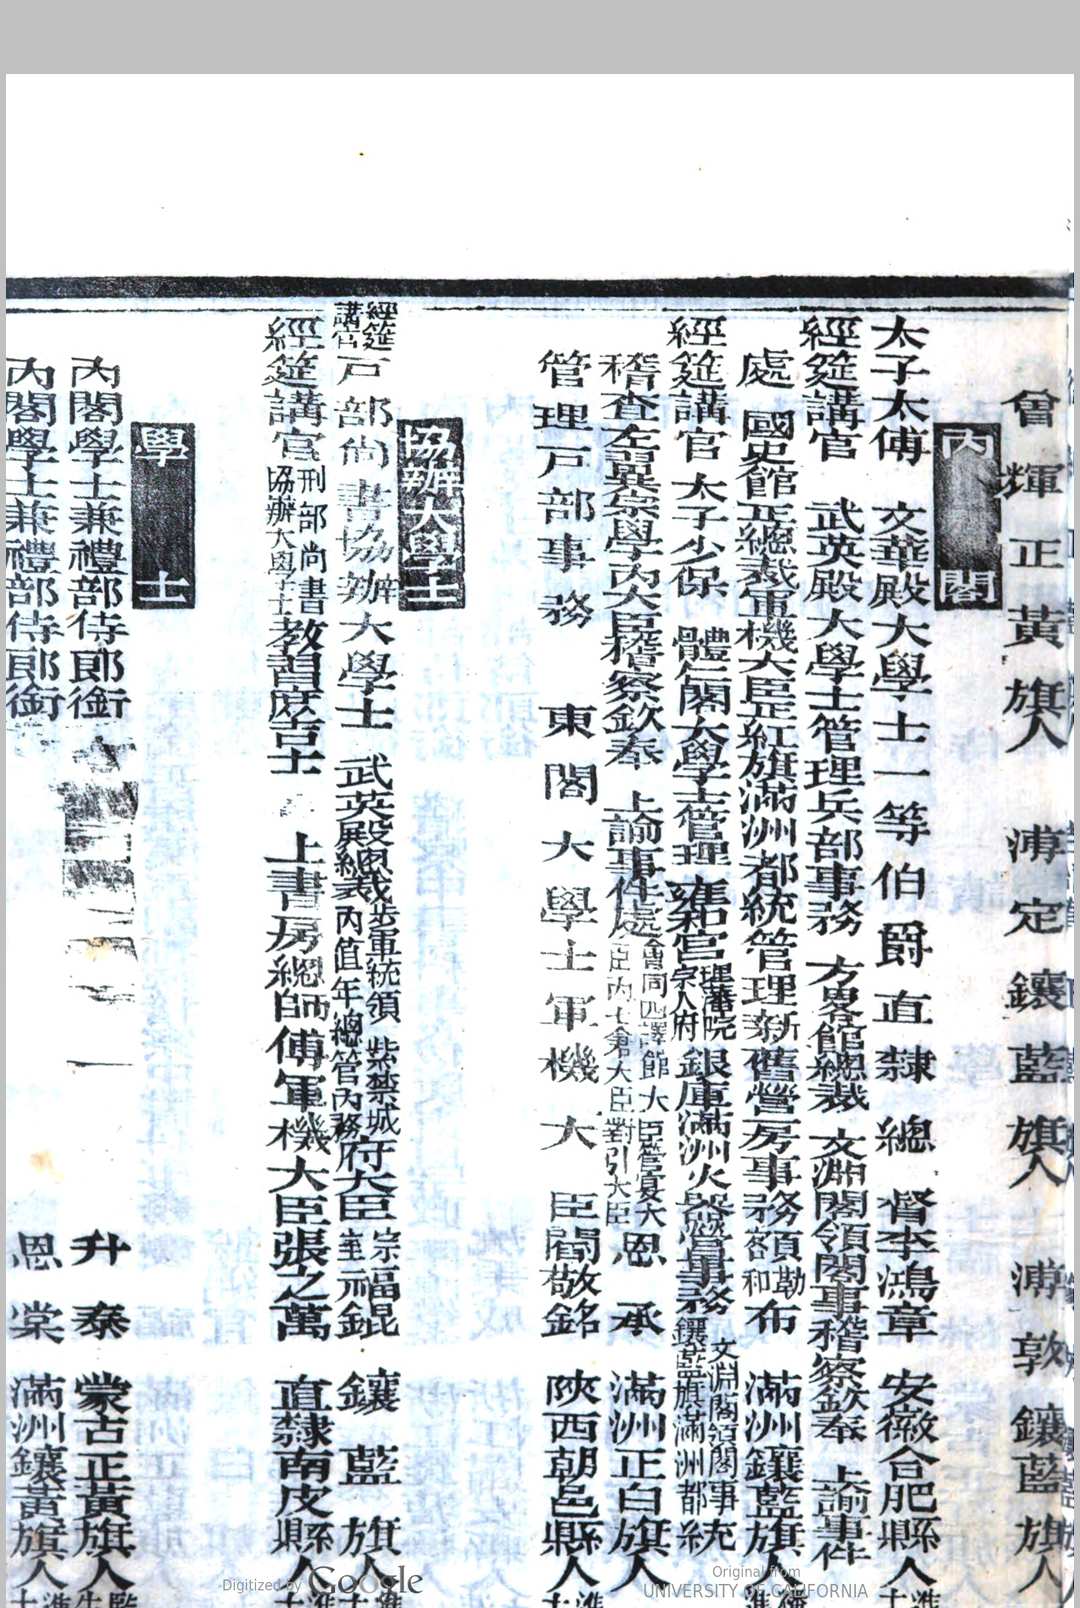 曾輝正黃旗人 溥定鑲藍旗人 溥敦鑲藍旗人
內閣
太子太傅 文華殿大學士一等伯爵直隸總督李鴻章 安徽合肥縣人
經筵講官 武英殿大學士管理兵部事務 方畧館總裁 文淵閣領閣事稽察欽奉 上諭事件
處 國史館正總裁軍機大臣正紅旗滿洲都統管理新舊營房事務額勒和布 滿洲鑲藍旗人
經筵講官 太子少保 體仁閣大學士管理 雍和宮理藩院宗人府 銀庫滿洲火器營事務 文淵閣領閣事鑲藍旗滿洲都統
稽查 宗學內大臣稽察欽奉 上諭事件處會同四譯館大臣管宴大臣內大臣對引大臣恩承 滿洲正白旗人
管理戶部事務 東閣大學士軍機大臣閻敬銘 陝西朝邑縣人
協辦大學士
經筵講官戶部尚書協辦大學士 武英殿總裁步軍統領 紫禁城內值年總管內務府大臣宗室福錕 鑲藍旗人
經筵講官刑部尚書協辦大學士教習庶吉士 上書房總師傅軍機大臣張之萬 直隸南皮縣人
學士
內閣學士兼禮部侍郎銜 升泰 蒙古正黃旗人
內閣學士兼禮部侍郎銜 恩棠 滿洲鑲黃旗人
Digitized by Google
Original from
UNIVERSITY OF CALIFORNIA